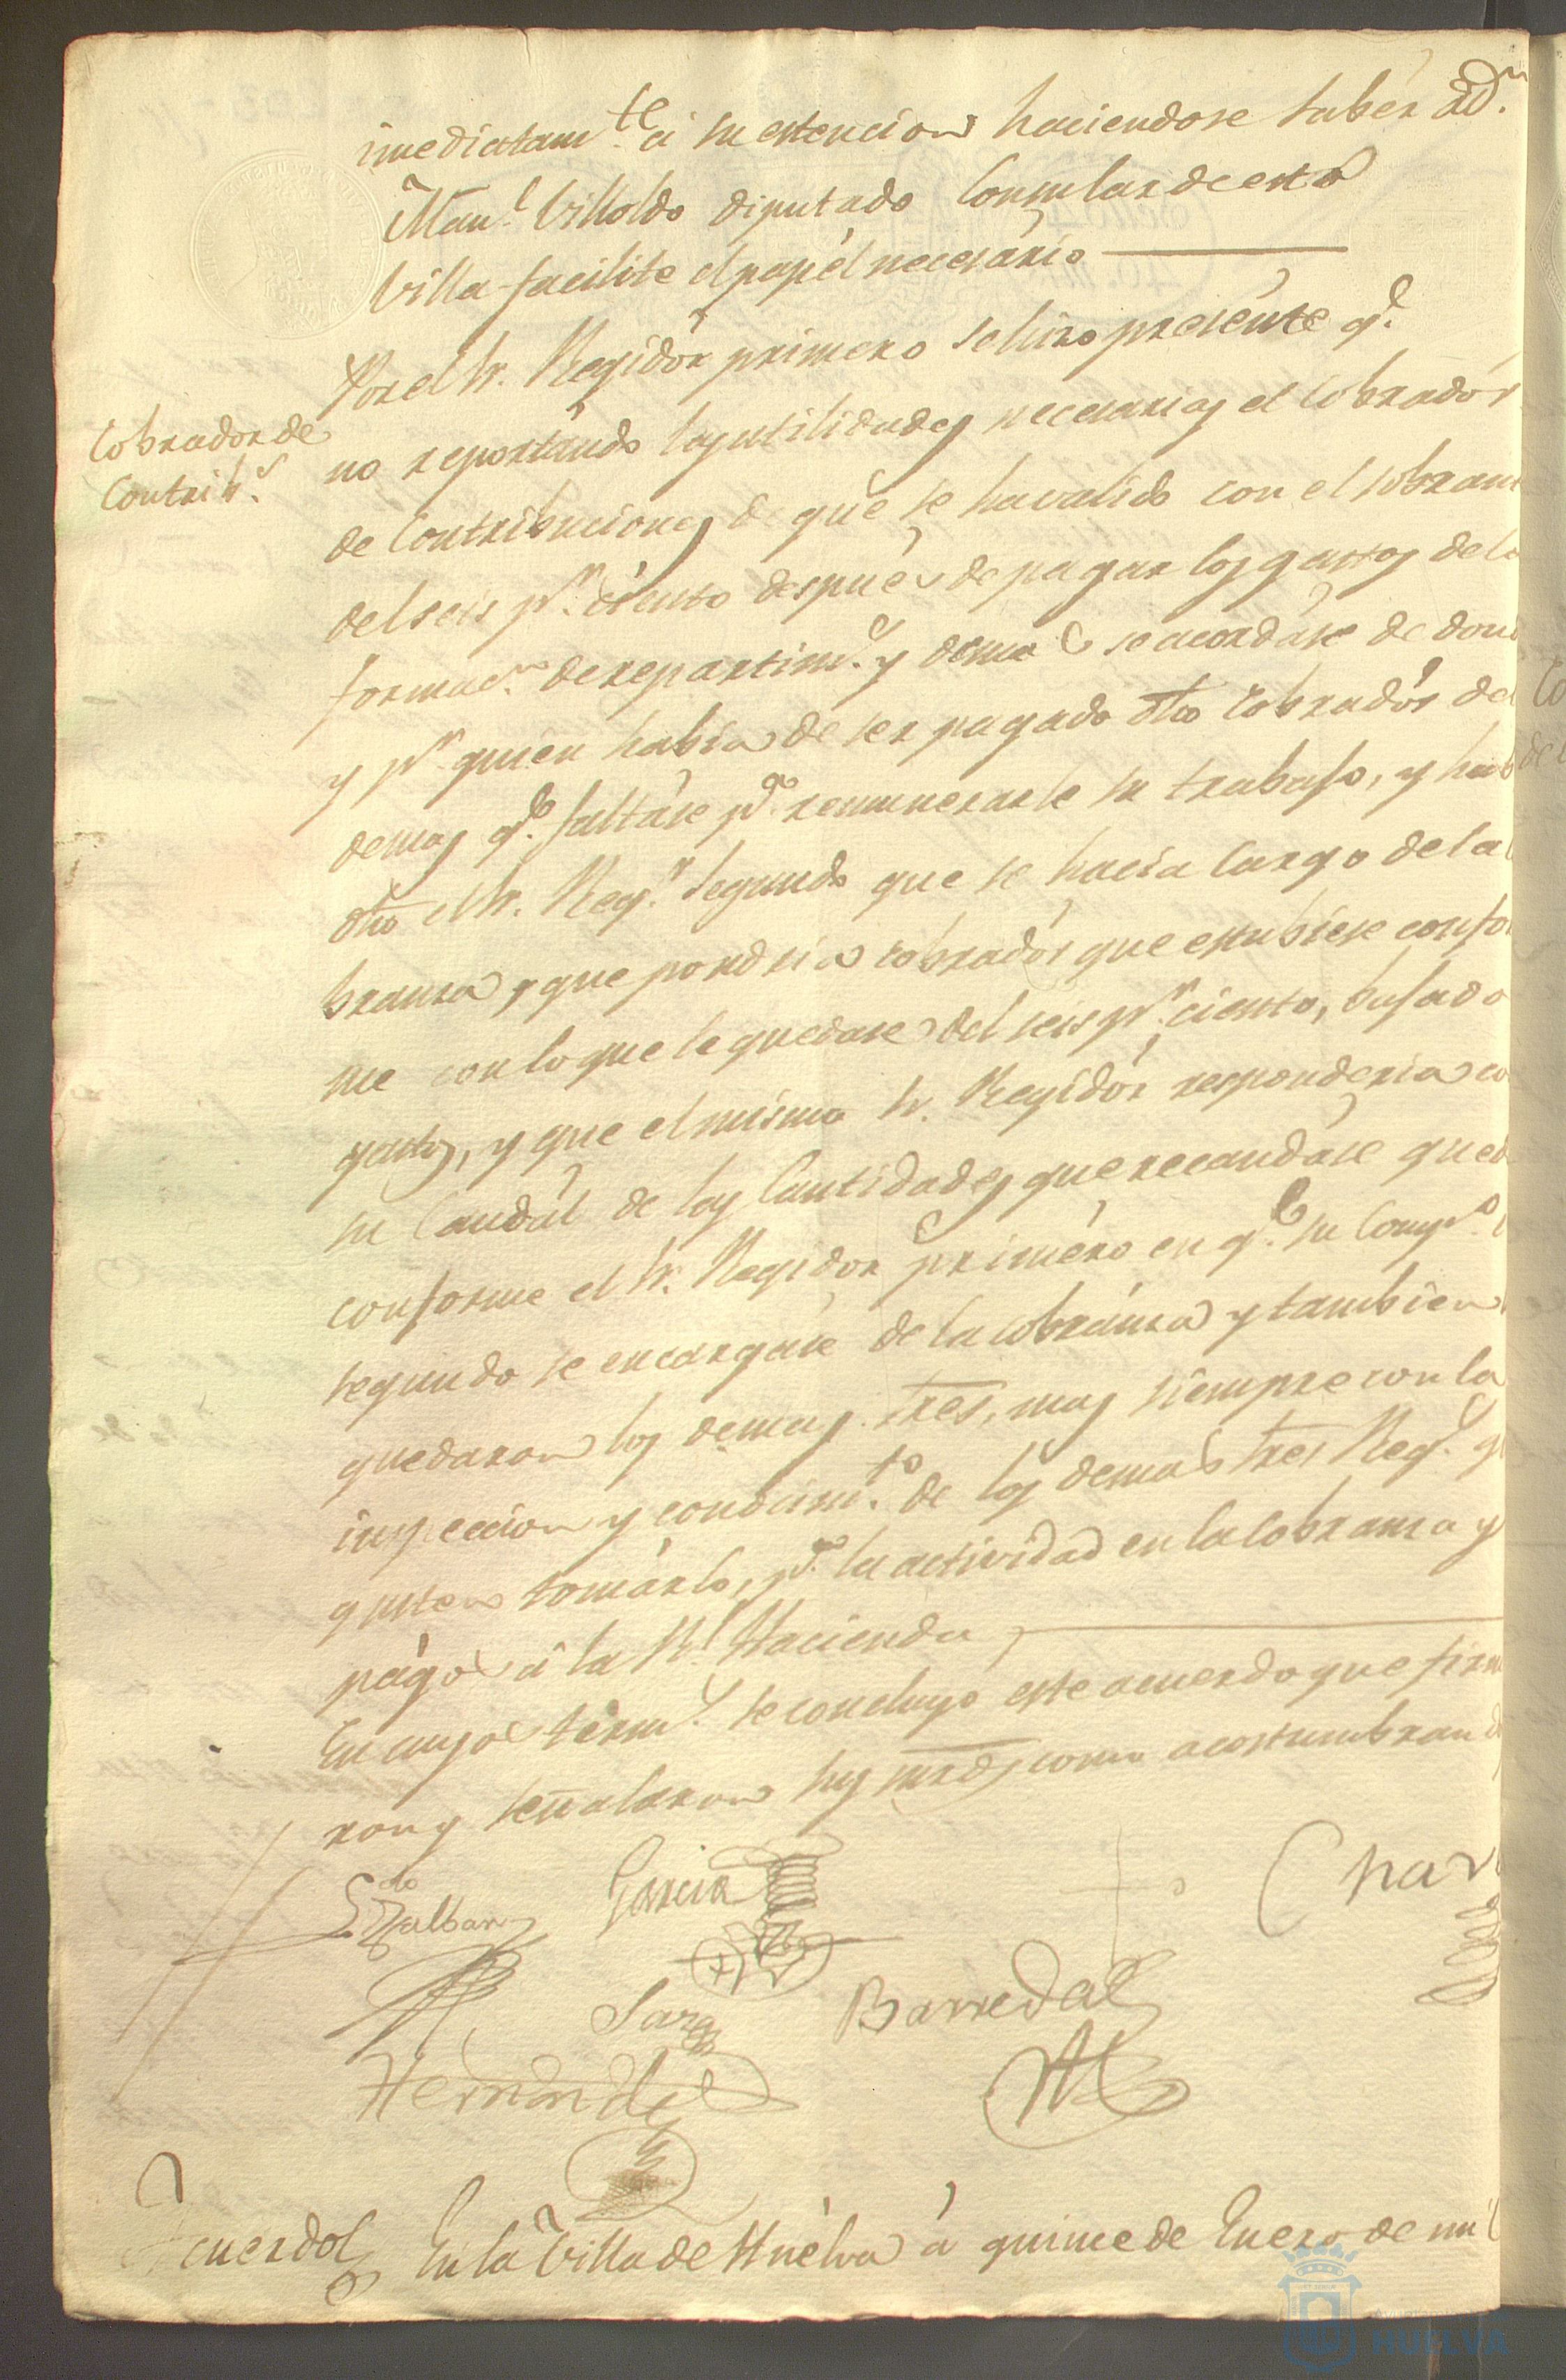 imediatam.te á su estencion haciendose saber á D.n
Man.l Villoldo diputado Consular de esta
Villa facilite el papél necesário
Por el Sr. Regidór primero se hizo presénte q.e
Cobrador de
Contrib.s
no reportándo las utilidades necesarias el Cobradór
de Contribuciones de que se ha valido con el sobrant
del seis p.r ciento despues de pagar los gastos de la
formac.n de repartim.s y demas se acordáse de dond
y p.r quien habia de ser pagado dho Cobradór del
demas q.e faltáse p.a remunerarle su trabajo, y hab
dho el Sr. Reg.r Segundo que se hacía Cargo de la
branza y que pondria cobradór que estubiese confor
me con lo que le quedase del seis p.r ciento, bajado
gastos, y que el mismo Sr. Regidór responderia co
su Caudál de las Cantidades que recaudáse qued
conforme el Sr. Regidor priméro en q.e su Comp.o
segundo se encargáse de la cobránza y tambien
quedaron los demas tres, mas siempre con la
inspeccion y conocim.to de los demas tres Reg.s q
gusten tomárlo, p.a la actividad en la Cobranza y
págo á la R.l Hacienda
En cuyos térm.s se concluyó este acuerdo que firm
ron y señalaron sus mrds como acostumbran d
L.do Zalban
Garcia
Char
Barreda
Hernandz
Acuerdo En la Villa de Huélva á quince de Enero de mil
HUELVA